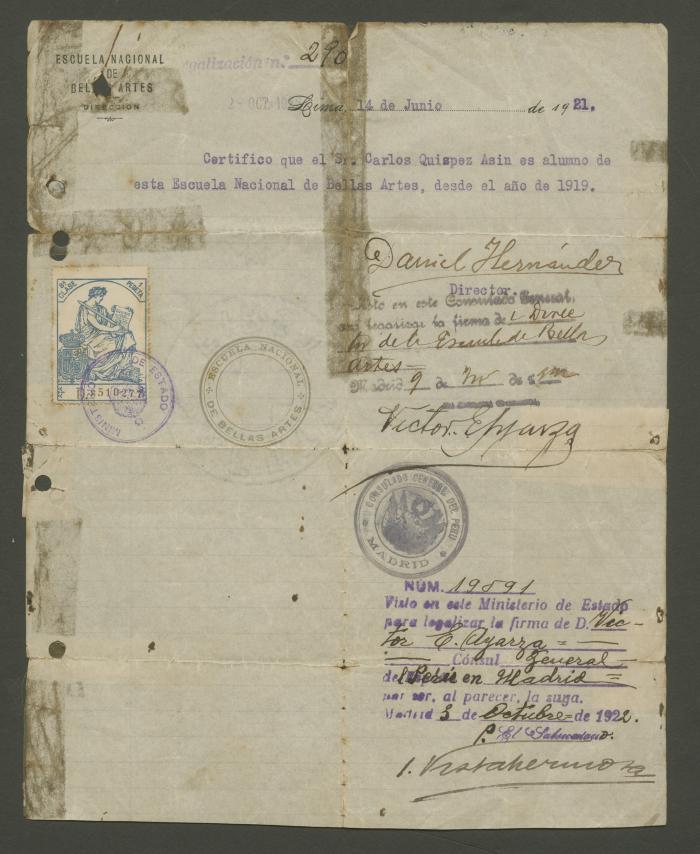 ESCUELA NACIONAL
DE
BELLAS ARTES
DIRECCION
Legalización n.º 290
2 - OCT. 19
Lima, 14 de Junio de 1921.
Certifico que el Sr. Carlos Quispez Asin es alumno de
esta Escuela Nacional de Bellas Artes, desde el año de 1919.
Daniel Hernández
Director.
Visto en este Consulado General,
para legalizar la firma de l Direc
tor de la Escuela de Bellas
Artes =
Madrid 2 de de
El Cónsul General,
8ª CLASE 1 PESETA
510277
MINISTERIO DE ESTADO
ESCUELA NACIONAL
DE BELLAS ARTES
CONSULADO GENERAL DEL PERU
MADRID
NÚM. 19891
Visto en este Ministerio de Estado
para legalizar la firma de D. Víc-
tor E. Ayarza =
= Cónsul General =
del Perú en Madrid =
por ser, al parecer, la suya.
Madrid 3 de Octubre = de 1922.
P. El Subsecretario.